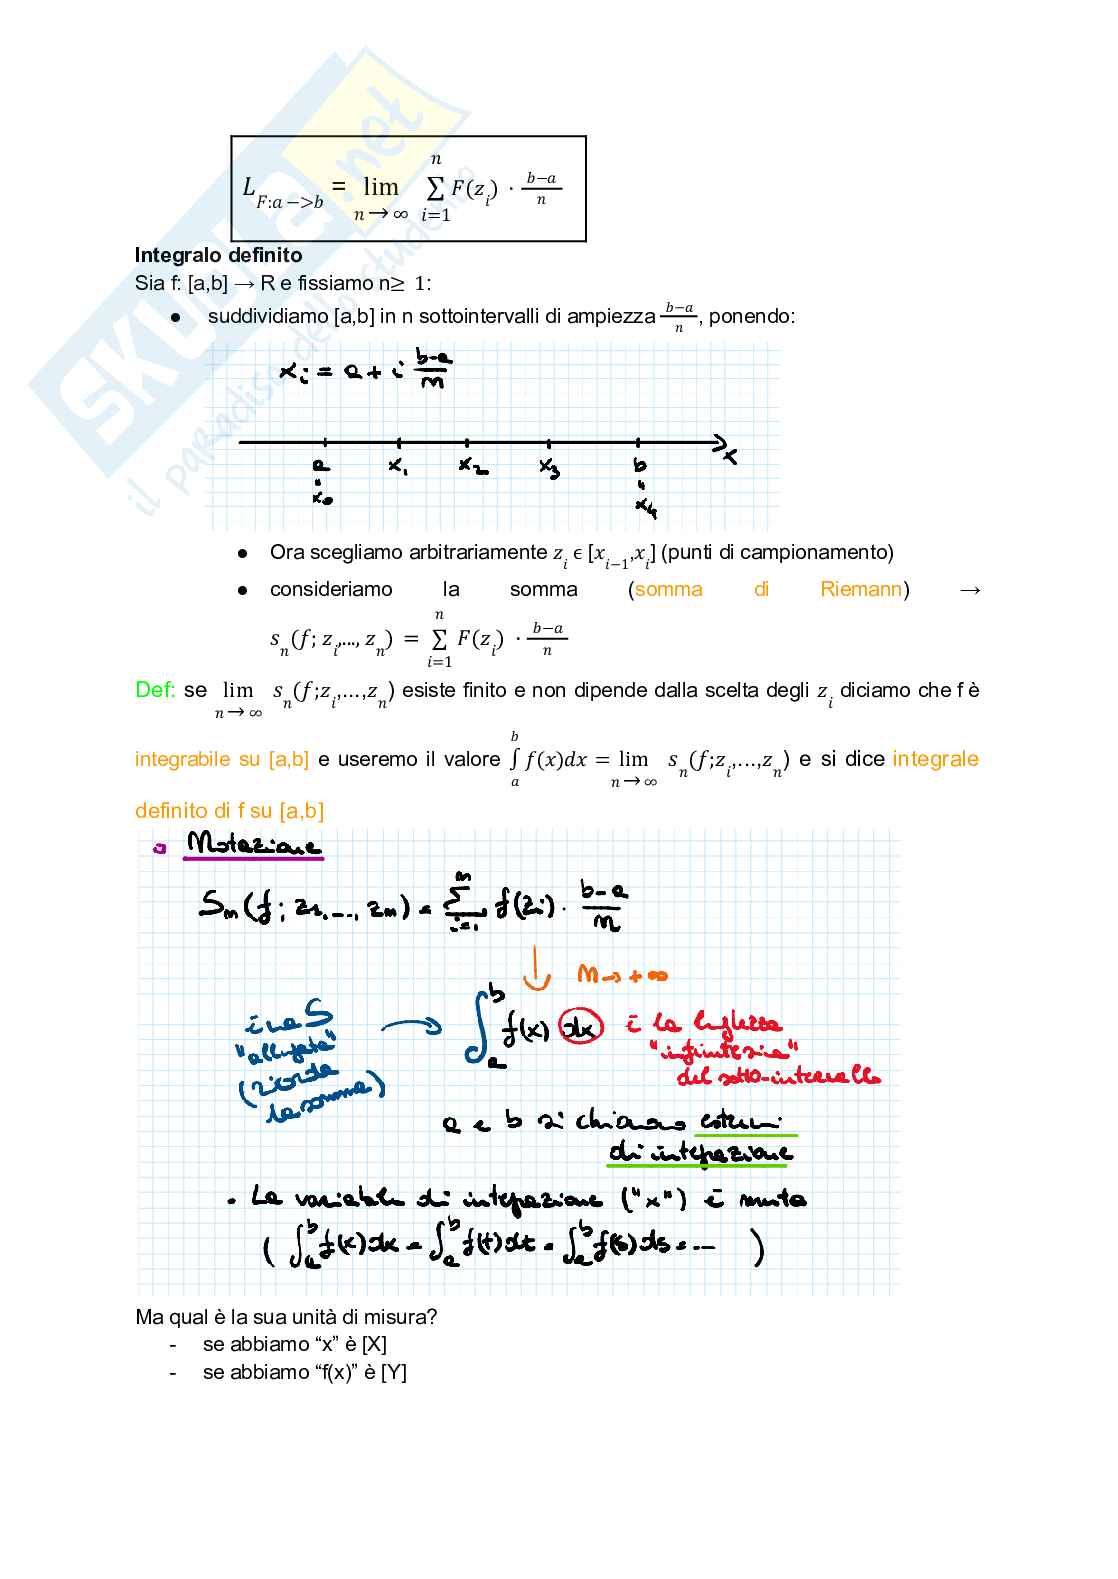 SKUOLA.net
il paradiso dello studente
L_{F:a−>b} = lim_{n→∞} ∑_{i=1}^{n} F(z_i) · (b−a)/n
Integralo definito
Sia f: [a,b] → R e fissiamo n≥ 1:
● suddividiamo [a,b] in n sottointervalli di ampiezza (b−a)/n, ponendo:
x_i = a + i (b-a)/n
a x_1 x_2 x_3 b x
" "
x_0 x_4
● Ora scegliamo arbitrariamente z_i ϵ [x_{i−1},x_i] (punti di campionamento)
● consideriamo la somma (somma di Riemann) →
s_n(f; z_i,..., z_n) = ∑_{i=1}^{n} F(z_i) · (b−a)/n
Def: se lim_{n→∞} s_n(f;z_i,...,z_n) esiste finito e non dipende dalla scelta degli z_i diciamo che f è
integrabile su [a,b] e useremo il valore ∫_a^b f(x)dx = lim_{n→∞} s_n(f;z_i,...,z_n) e si dice integrale
definito di f su [a,b]
Notazione
S_n(f; z_1,..., z_n) = ∑_{i=1}^{n} f(z_i) · (b-a)/n
↓ n→+∞
è una S
"allungata"
(ricorda
la somma)
→ ∫_a^b f(x) dx è la lunghezza
"infinitesima"
del sotto-intervallo
a e b si chiamano estremi
di integrazione
• La variabile di integrazione ("x") è muta
( ∫_a^b f(x)dx = ∫_a^b f(t)dt = ∫_a^b f(s)ds = ... )
Ma qual è la sua unità di misura?
- se abbiamo “x” è [X]
- se abbiamo “f(x)” è [Y]